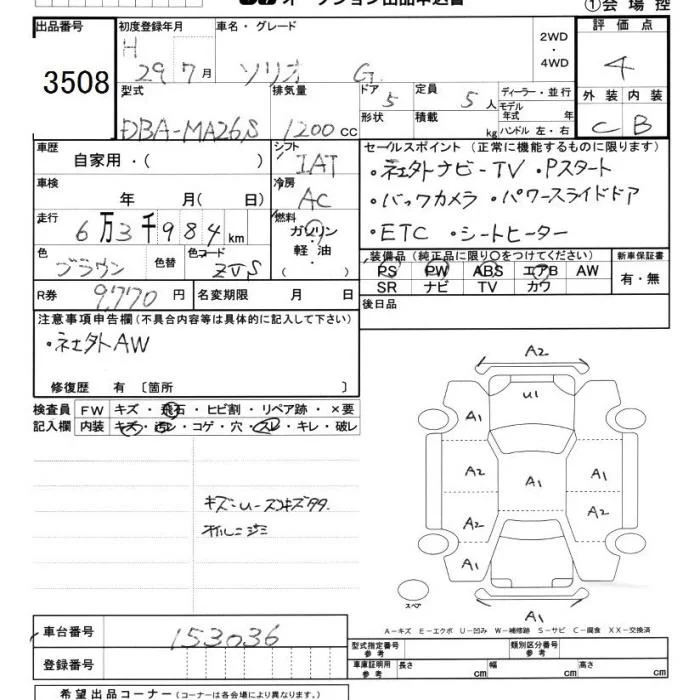 ①会場控
出品番号 初度登録年月 車名・グレード 評価点
3508 H 29 7月 ソリオ G 2WD・4WD 4
型式 排気量 ドア 定員 ディーラー・並行 外装 内装
DBA-MA26S 1200cc 5 5人 モデル年式 年 C B
形状 積載 kg ハンドル 左・右
車歴 シフト セールスポイント(正常に機能するものに限ります)
自家用・( ) IAT ・社外ナビ-TV ・Pスタート
車検 冷房
年 月( 日) AC ・バックカメラ ・パワースライドドア
走行 燃料
6万3千984km ガソリン 軽油 ( ) ・ETC ・シートヒーター
色 色替 色コード 装備品(純正品に限り○をつけてください) 新車保証書
ブラウン ZVS PS PW ABS エアB AW 有・無
SR ナビ TV カワ
R券 9,770円 名変期限 月 日 後日品
注意事項申告欄(不具合内容等は具体的に記入して下さい)
・社外AW
修復歴 有〔箇所 〕
検査員 FW キズ・飛石・ヒビ割・リペア跡・×要
記入欄 内装 キズ・汚レ・コゲ・穴・スレ・キレ・破レ
A2
U1
A1
A2 A1 A1
A2 A2
A1
スペア
A1
キズ-U-
A-キズ E-エクボ U-凹み W-補修跡 S-サビ C-腐食 XX-交換済
車台番号 153036
登録番号
型式指定番号 参考 類別区分番号 参考
車庫証明用 参考 長さ cm 幅 cm 高さ cm
希望出品コーナー(コーナーは各会場により異なります。)